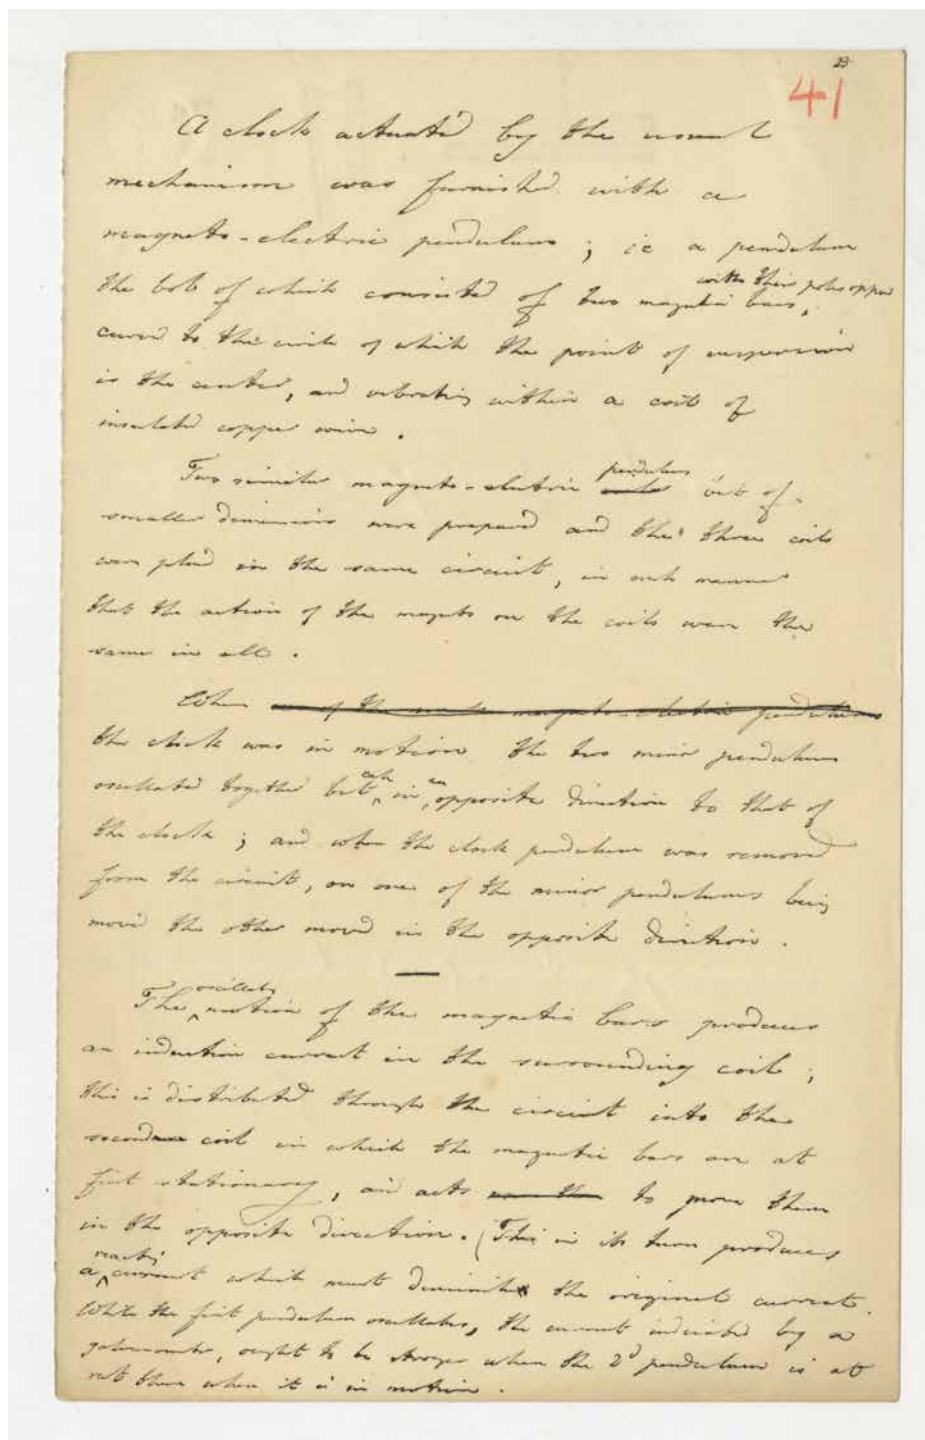 23
41
A clock actuated by the usual
mechanism was furnished with a
magneto-electric pendulum ; ie a pendulum
with their poles opposed
the bob of which consisted of two magnetic bars,
curved to the circle of which the point of suspension
is the center, and vibrating within a coil of
insulated copper wire .
pendulums
Two similar magneto-electric but of
smaller dimensions were prepared and the three coils
were placed in the same circuit, in such manner
that the action of the magnets on the coils were the
same in all .
When of the magneto-electric pendulums
the clock was in motion the two minor pendulums
each an
oscillated together but in opposite direction to that of
the clock ; and when the clock pendulum was removed
from the circuit, on one of the minor pendulums being
moved the other moved in the opposite direction .
oscillatory
The motion of the magnetic bars produces
an induction current in the surrounding coil ;
this is distributed through the circuit into the
second coil in which the magnetic bars are at
first stationary, and acts to move them
in the opposite direction. (This in its turn produces
reacting
a current which must diminish the original current.
While the first pendulum oscillates, the current indicated by a
galvanometer, ought to be stronger when the 2d pendulum is at
rest than when it is in motion .